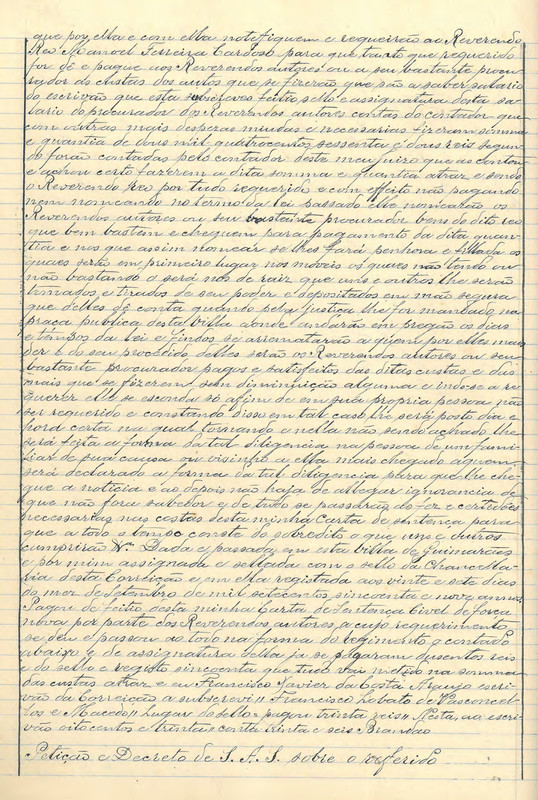 que por ella e com ella notifiquem e requeirão ao Reverendo
Reo Manoel Ferreira Cardoso para que tanto que requerido
for dê e pague aos Reverendos autores ou a seu bastante procu-
rador as custas dos autos que se fizerão que são a saber salario
do escrivão que esta subscreveu feitio sello e assignatura desta sa-
lario do procurador dos Reverendos autores contas do contador que
com outras mais despesas miudas e necessarias fizeram somma
e quantia de dous mil quatrocentos sessenta e dous reis segun-
do forão contadas pelo contador deste meu juizo que as contou
e achou certo fazerem a dita somma e quantia atraz e sendo
o Reverendo reo por tudo requerido e com effeito não pagando
nem nomeando no termo da lei passado elle nomearão os
Reverendos autores ou seu bastante procurador bens do dito reo
que bem bastem e cheguem para pagamento da dita quan-
tia e nos que assim nomear se lhes fará penhora e filhada os
quaes serão em primeiro lugar nos moveis os quaes não tendo ou
não bastando o será nos de raiz que uns e outros lhe serão
tomados e tirados de seu poder e depositados em mão segura
que d'elles dê conta quando pela justiça lhe for mandado na
praça publica desta villa aonde andarão em pregão os dias
e tempos da lei e findos se arrematarão a quem por elles mais
der e do seu procedido delles serão os Reverendos autores ou seu
bastante procurador pagos e satisfeitos das ditas custas e das
mais que se fizerem sem diminuição alguma e indo-se a re-
querer elle se esconda só afim de em sua propria pessoa não
ser requerido e constando disso em tal caso lhe será posto dia e
hora certa na qual tornando e nella não sendo achado lhe
será feita a forma da tal diligencia na pessoa de um fami-
liar de sua causa ou visinho a ella mais chegado a quem
será declarado a forma da tal diligencia para que lhe che-
gue a noticia e ao depois não haja de allegar ignorancia de
que não fora sabedor e de tudo se passarão as fez e certidões
necessarias nas costas desta minha Carta de sentença para
que a todo o tempo conste do sobredito o que uns e outros
cumprirão Dada e passada em esta villa de Guimarães
e por mim assignada e sellada com o sello da Chancella-
ria desta Correição e em ella registada aos vinte e sete dias
do mez de Setembro de mil setecentos sincoenta e nove annos
Pagou de feitio desta minha Carta de Sentença Civel de força
nova por parte dos Reverendos autores a cujo requerimento
se deu e passou ao todo na forma do regimento o contado
abaixo e de assignatura della ja se pagaram dusentos reis
e do sello e registo sincoenta que tudo vai metido na somma
das custas atraz e eu Francisco Xavier da Costa Araujo escri-
vão da Correição a subscrevi // Francisco Lobato de Vasconcel-
los e Macedo // Lugar do sello // pagou trinta reis // Nesta, ao escri-
vão oitocentos e trinta e conta trinta e seis Brandão
Petição e Decreto de S. A. S. sobre o referido